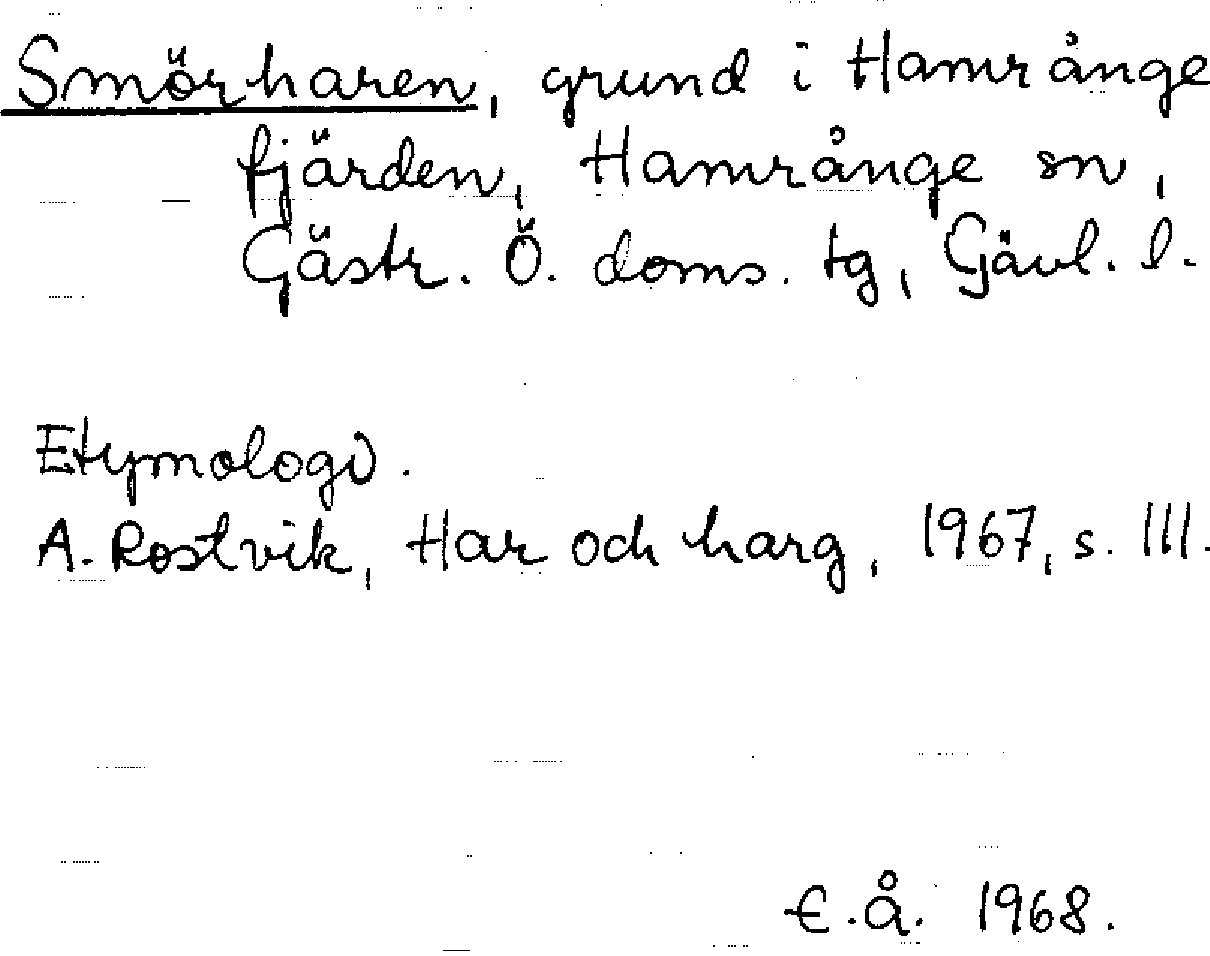 Smörharen, grund i Hamrånge
fjärden, Hamrånge sn,
Gästr. Ö. doms. tg, Gävl. l.
Etymologi.
A. Rostvik, Har och harg, 1967, s. 111.
E.Å. 1968.